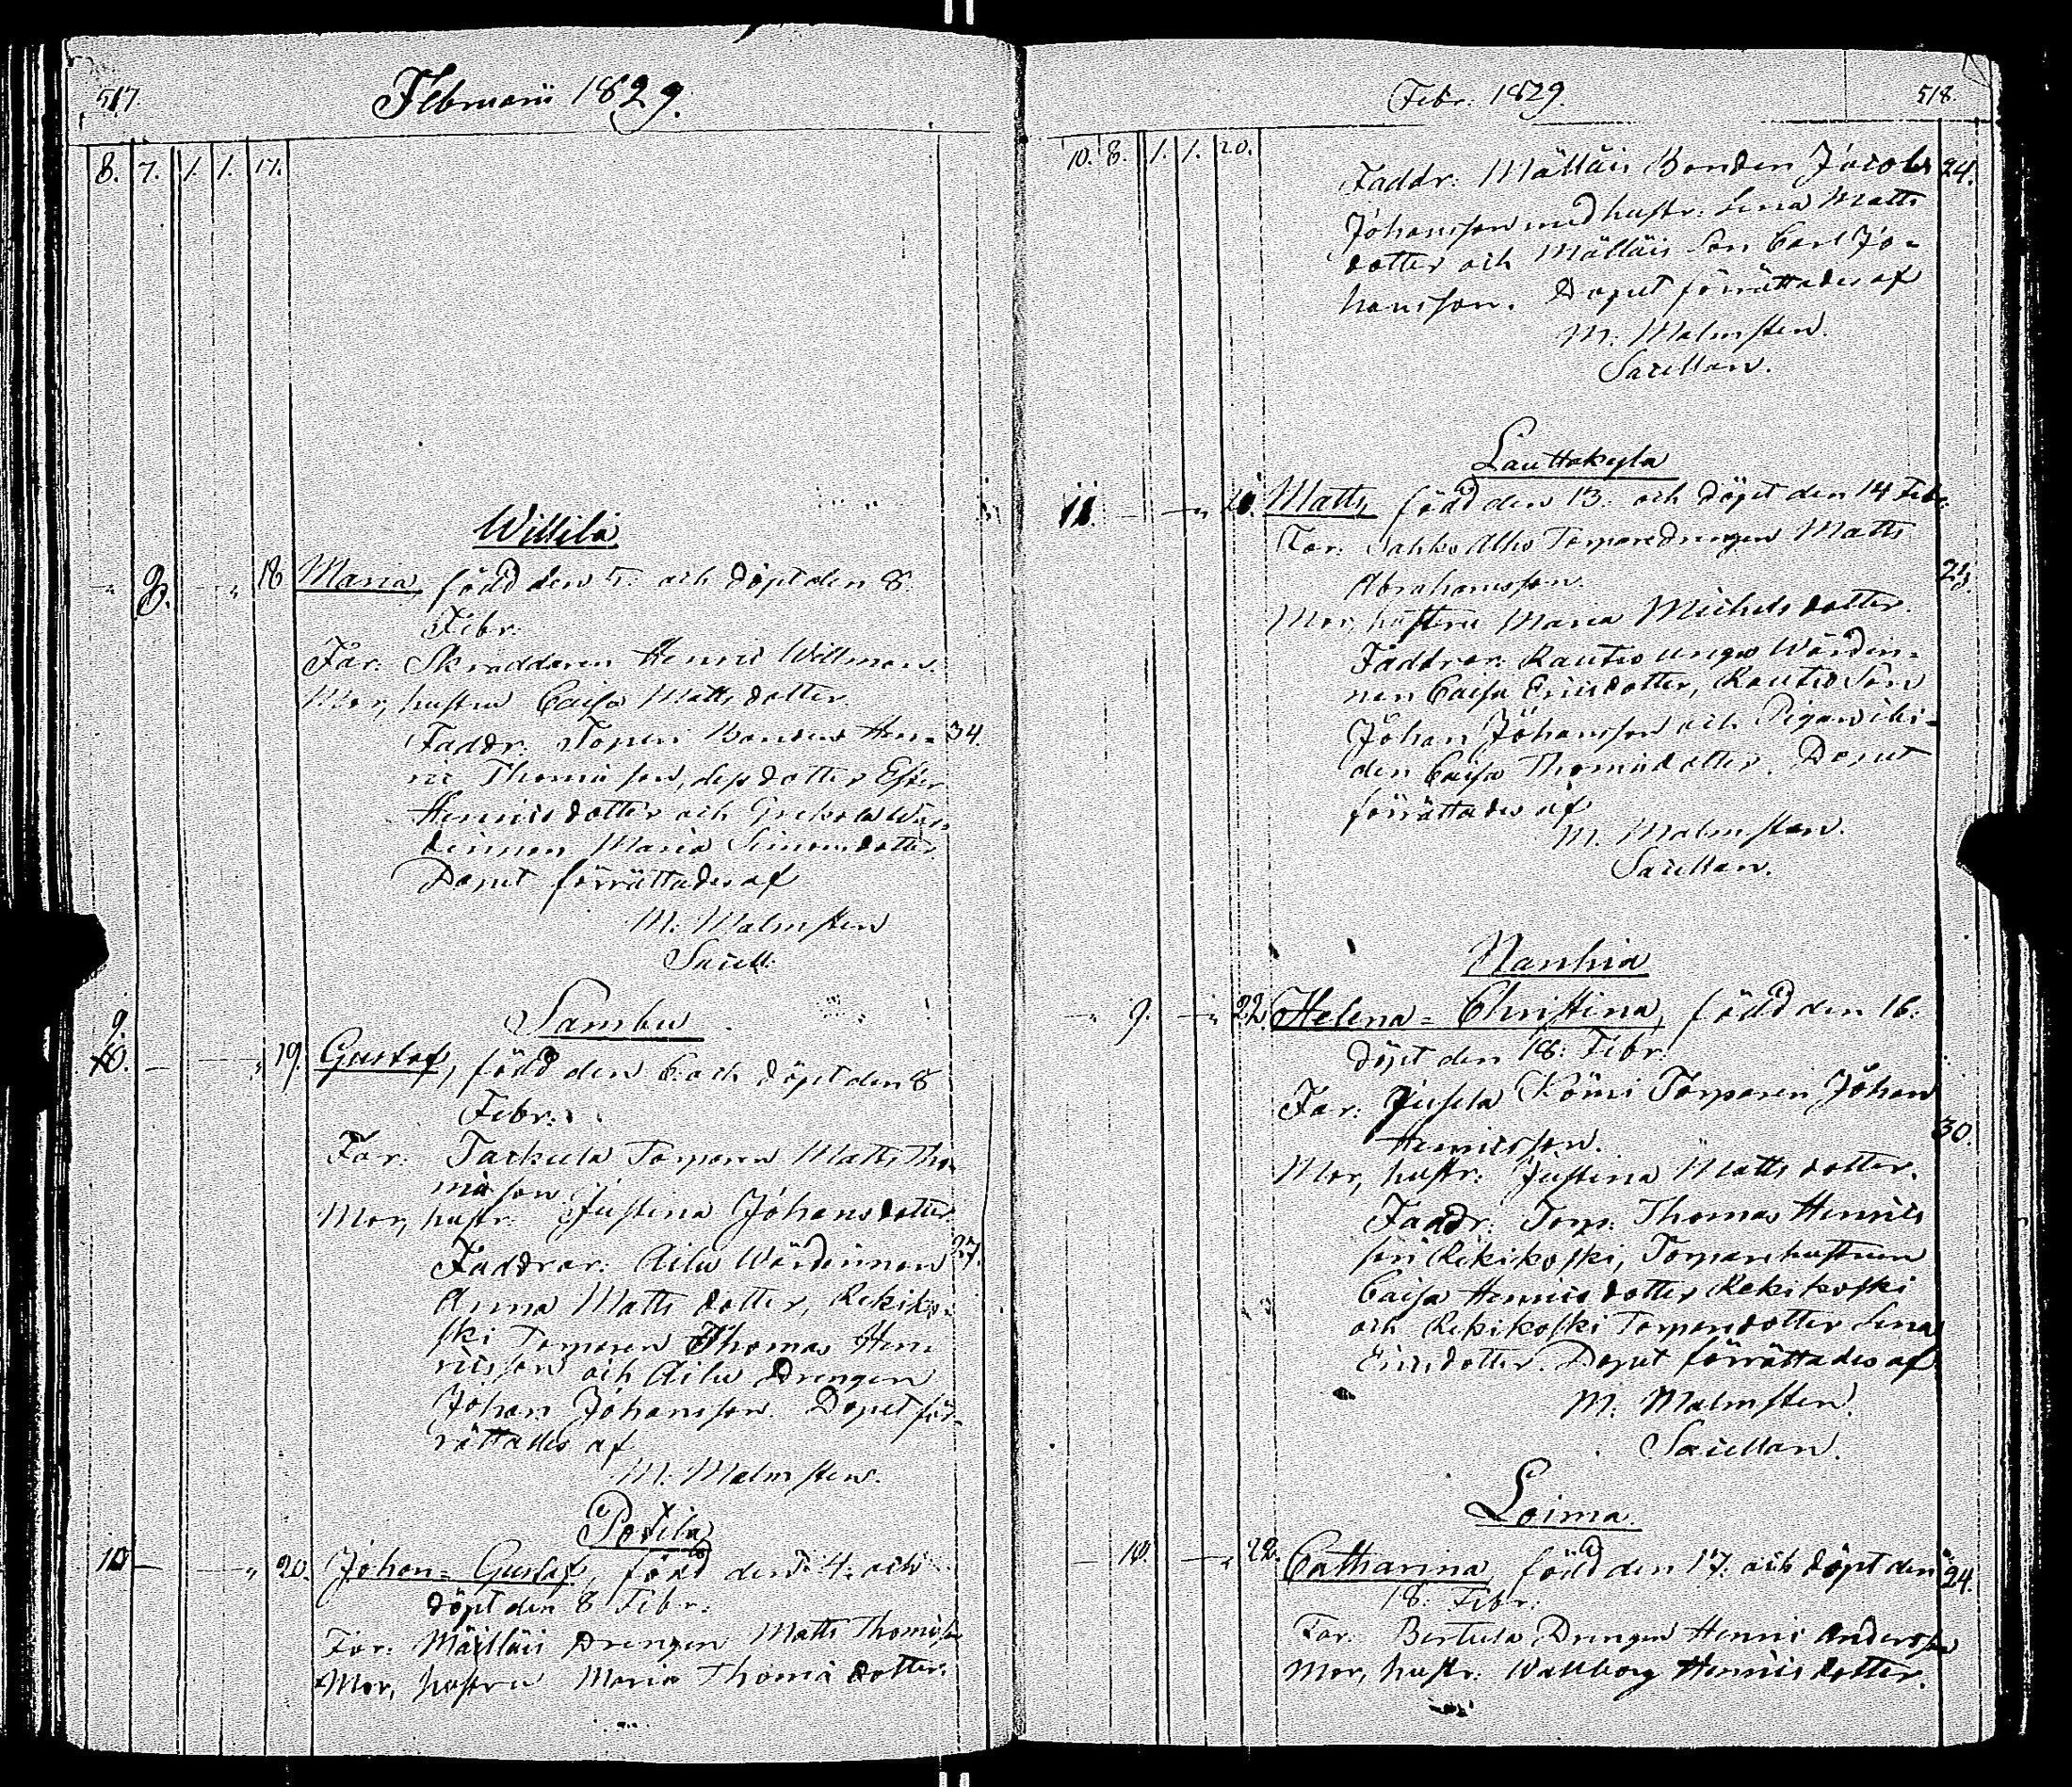 517
Februarii 1829.
8. 7. 1. 1. 17.
Willilä
" 8. " 18 Maria, född den 5. och döpt den 8
Febr.
Far: Skräddaren Henric Willman.
Mor, hustru Caisa Mattsdotter.
Faddr. Bonden Hen- 34.
ric Thomæson, dess dotter Ester
Henricsdotter och Grekola Wär-
dinnan Maria Simonsdotter.
Dopet förrättades af
M. Malmsten
Sacell.
Sambu
9.
10. — " 19. Gustaf, född den 6. och döpt den 8
Febr.
Far: Tarkula Torparen Matts Tho-
mæson
Mor, hustr. Justina Johansdotter.
Faddrar: Ailu Wärdinnan 37.
Anna Mattsdotter, Rekiko-
ski Torparen Thomas Hen-
ricsson och Ailu Drengen
Johan Johansson. Dopet för-
rättades af
M. Malmsten.
Potila
10 — " 20. Johan-Gustaf, född den 4. och
döpt den 8 Febr.
Far: Mälläis Drengen Matts Thomæson
Mor, hustru Maria Thomædotter.
Febr. 1829.
518.
10. 8. 1. 1. 20.
Faddr: Mälläis Bonden Jacob 24.
Johansson med hustr. Lena Matts
dotter och Mälläis Son Carl Jo-
hansson. Dopet förrättades af
M. Malmsten.
Sacellan.
Lauttakylä
11. — " Matts, född den 13. och döpt den 14 Febr.
Far: Torparedrengen Matts
Abrahamsson.
Mor, hustru Maria Michelsdotter.
Faddrar: Rautio unga Wärdin-
nan Caisa Ericsdotter, Rautio Son
Johan Johansson och Pigan ibi-
dem Caisa Thomædotter. Dopet
förrättades af
M. Malmsten.
Sacellan.
Nanhia
" 9. — " 22. Helena-Christina, född den 16.
döpt den 18. Febr.
Far: Jusela Römi Torparen Johan
Henricsson. 30.
Mor, hustr: Justina Mattsdotter.
Faddr: Torp. Thomas Henrics
son Rekikoski, Torparehustrun
Caisa Henricsdotter Rekikoski
och Rekikoski Torparedotter Lena
Ericsdotter. Dopet förrättades af
M. Malmsten.
Sacellan.
Loima.
— 10. — " 22. Catharina, född den 17. och döpt den 24.
18. Febr.
Far: Bertula Drengen Henric Andersson
Mor, hustr: Wallborg Henricsdotter.